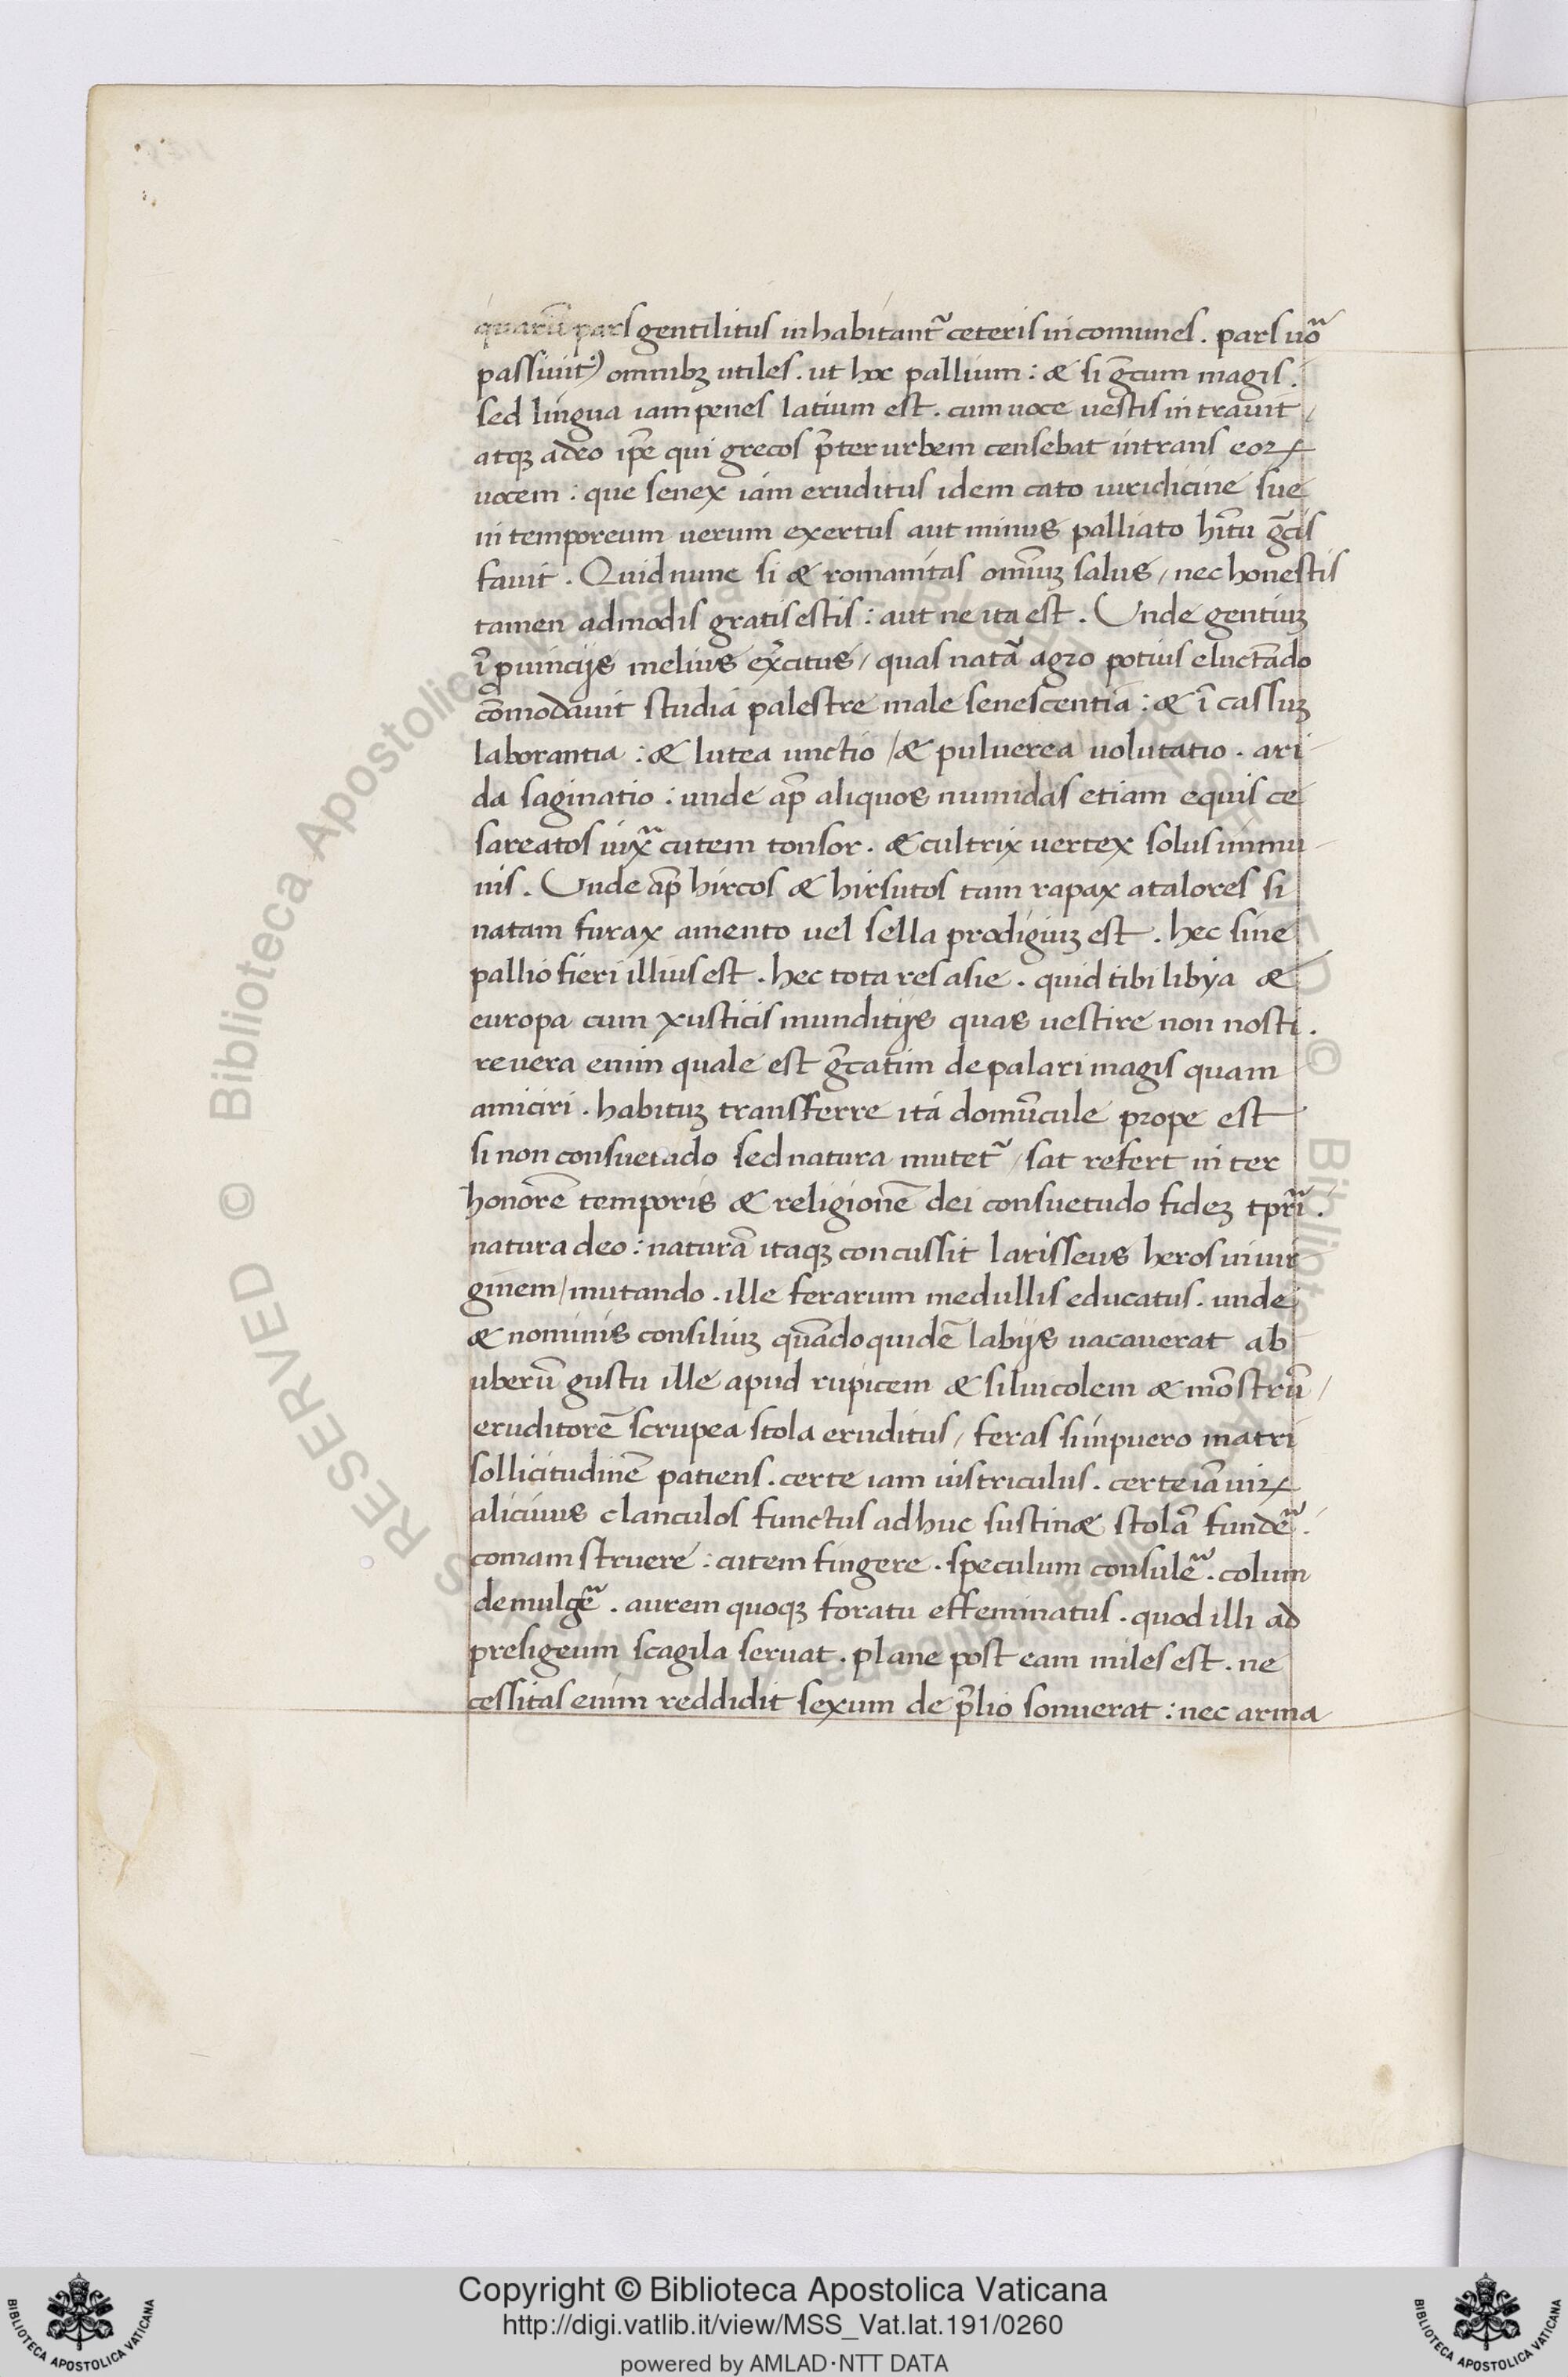 quarū pars gentilitus inhabitant᷑ ceteris in comunes . pars uō
passiuit᷒ omnibꝫ utiles . ut hoc pallium : & si gc̄um magis .
sed lingua iam penes latium est . cum uoce uestis intrauit /
atqꝫ adeo ip̄e qui grecos p̄ter urbem censebat intrans eoꝝ
uocem : que senex iam eruditus idem cato iuridicine sue
in temporeum uerum exertus aut minus palliato hītu gc̄is
fauit . Quid nunc si & romanitas omīuꝫ salus / nec honestis
tamen admodis gratis estis : aut ne ita est . Unde gentiuꝫ
ī ꝓuincijs melius ex̄citus / quas natā agro potius eluctādo
cōmodauit studia palestre male senescentia : & ī cassuꝫ
laborantia : & lutea unctio / & puluerea uolutatio . ari
da saginatio : unde ap̄ aliquos numidas etiam equis ce
sareatos iux̄ cutem tonsor . & cultrix uertex solus immu
nis . Unde ap̄ hircos & hirsutos tam rapax atalores si
natam furax amento uel sella prodigiuꝫ est . hec sine
pallio fieri illius est . hec tota res asie . quid tibi libya &
europa cum xusticis munditijs quas uestire non nosti .
reuera enim quale est gc̄atim depalari magis quam
amiciri . habituꝫ transferre ita domūcule prope est
si non consuetudo sed natura mutet᷑ / sat refert inter
honorē temporis & religionē dei consuetudo fideꝫ tpr̄i .
natura deo : naturā itaqꝫ concussit larisseus heros in uir
ginem / mutando . ille ferarum medullis educatus . unde
& nominis consiliuꝫ quādoquidē labijs uacauerat ab
uberū gustu ille apud rupicem & siluicolem & mōstrū /
eruditorē scrupea stola eruditus / feras si inpuero matri
sollicitudinē patiens . certe iam iustriculus . certe iā uiꝝ
alicuius clanculos functus adhuc sustin& stolā fundē .
comam struere : cutem fingere . speculum consulē . colum
demulgē . aurem quoqꝫ foratu effeminatus . quod illi ad
presigeum scagila seruat . plane post eam miles est . ne
cessitas enim reddidit sexum de p̄lio sonuerat : nec arma
RESERVED © Biblioteca Apostolica Vaticana
Copyright © Biblioteca Apostolica Vaticana
http://digi.vatlib.it/view/MSS_Vat.lat.191/0260
powered by AMLAD·NTT DATA
BIBLIOTECA APOSTOLICA VATICANA
BIBLIOTECA APOSTOLICA VATICANA